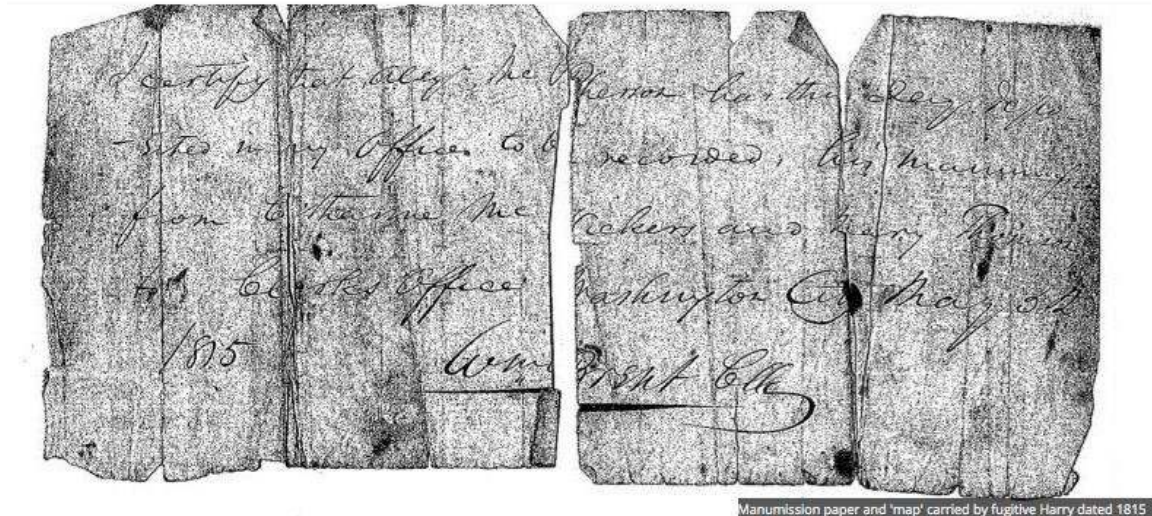 I certify that Alexr McPherson has this day depo
-sited in my Office to be recorded, his manumi
from Catharine Mc ickers and Mary
Clerks Office Washington City May
1815 Wm Brent Clk
Manumission paper and 'map' carried by fugitive Harry dated 1815